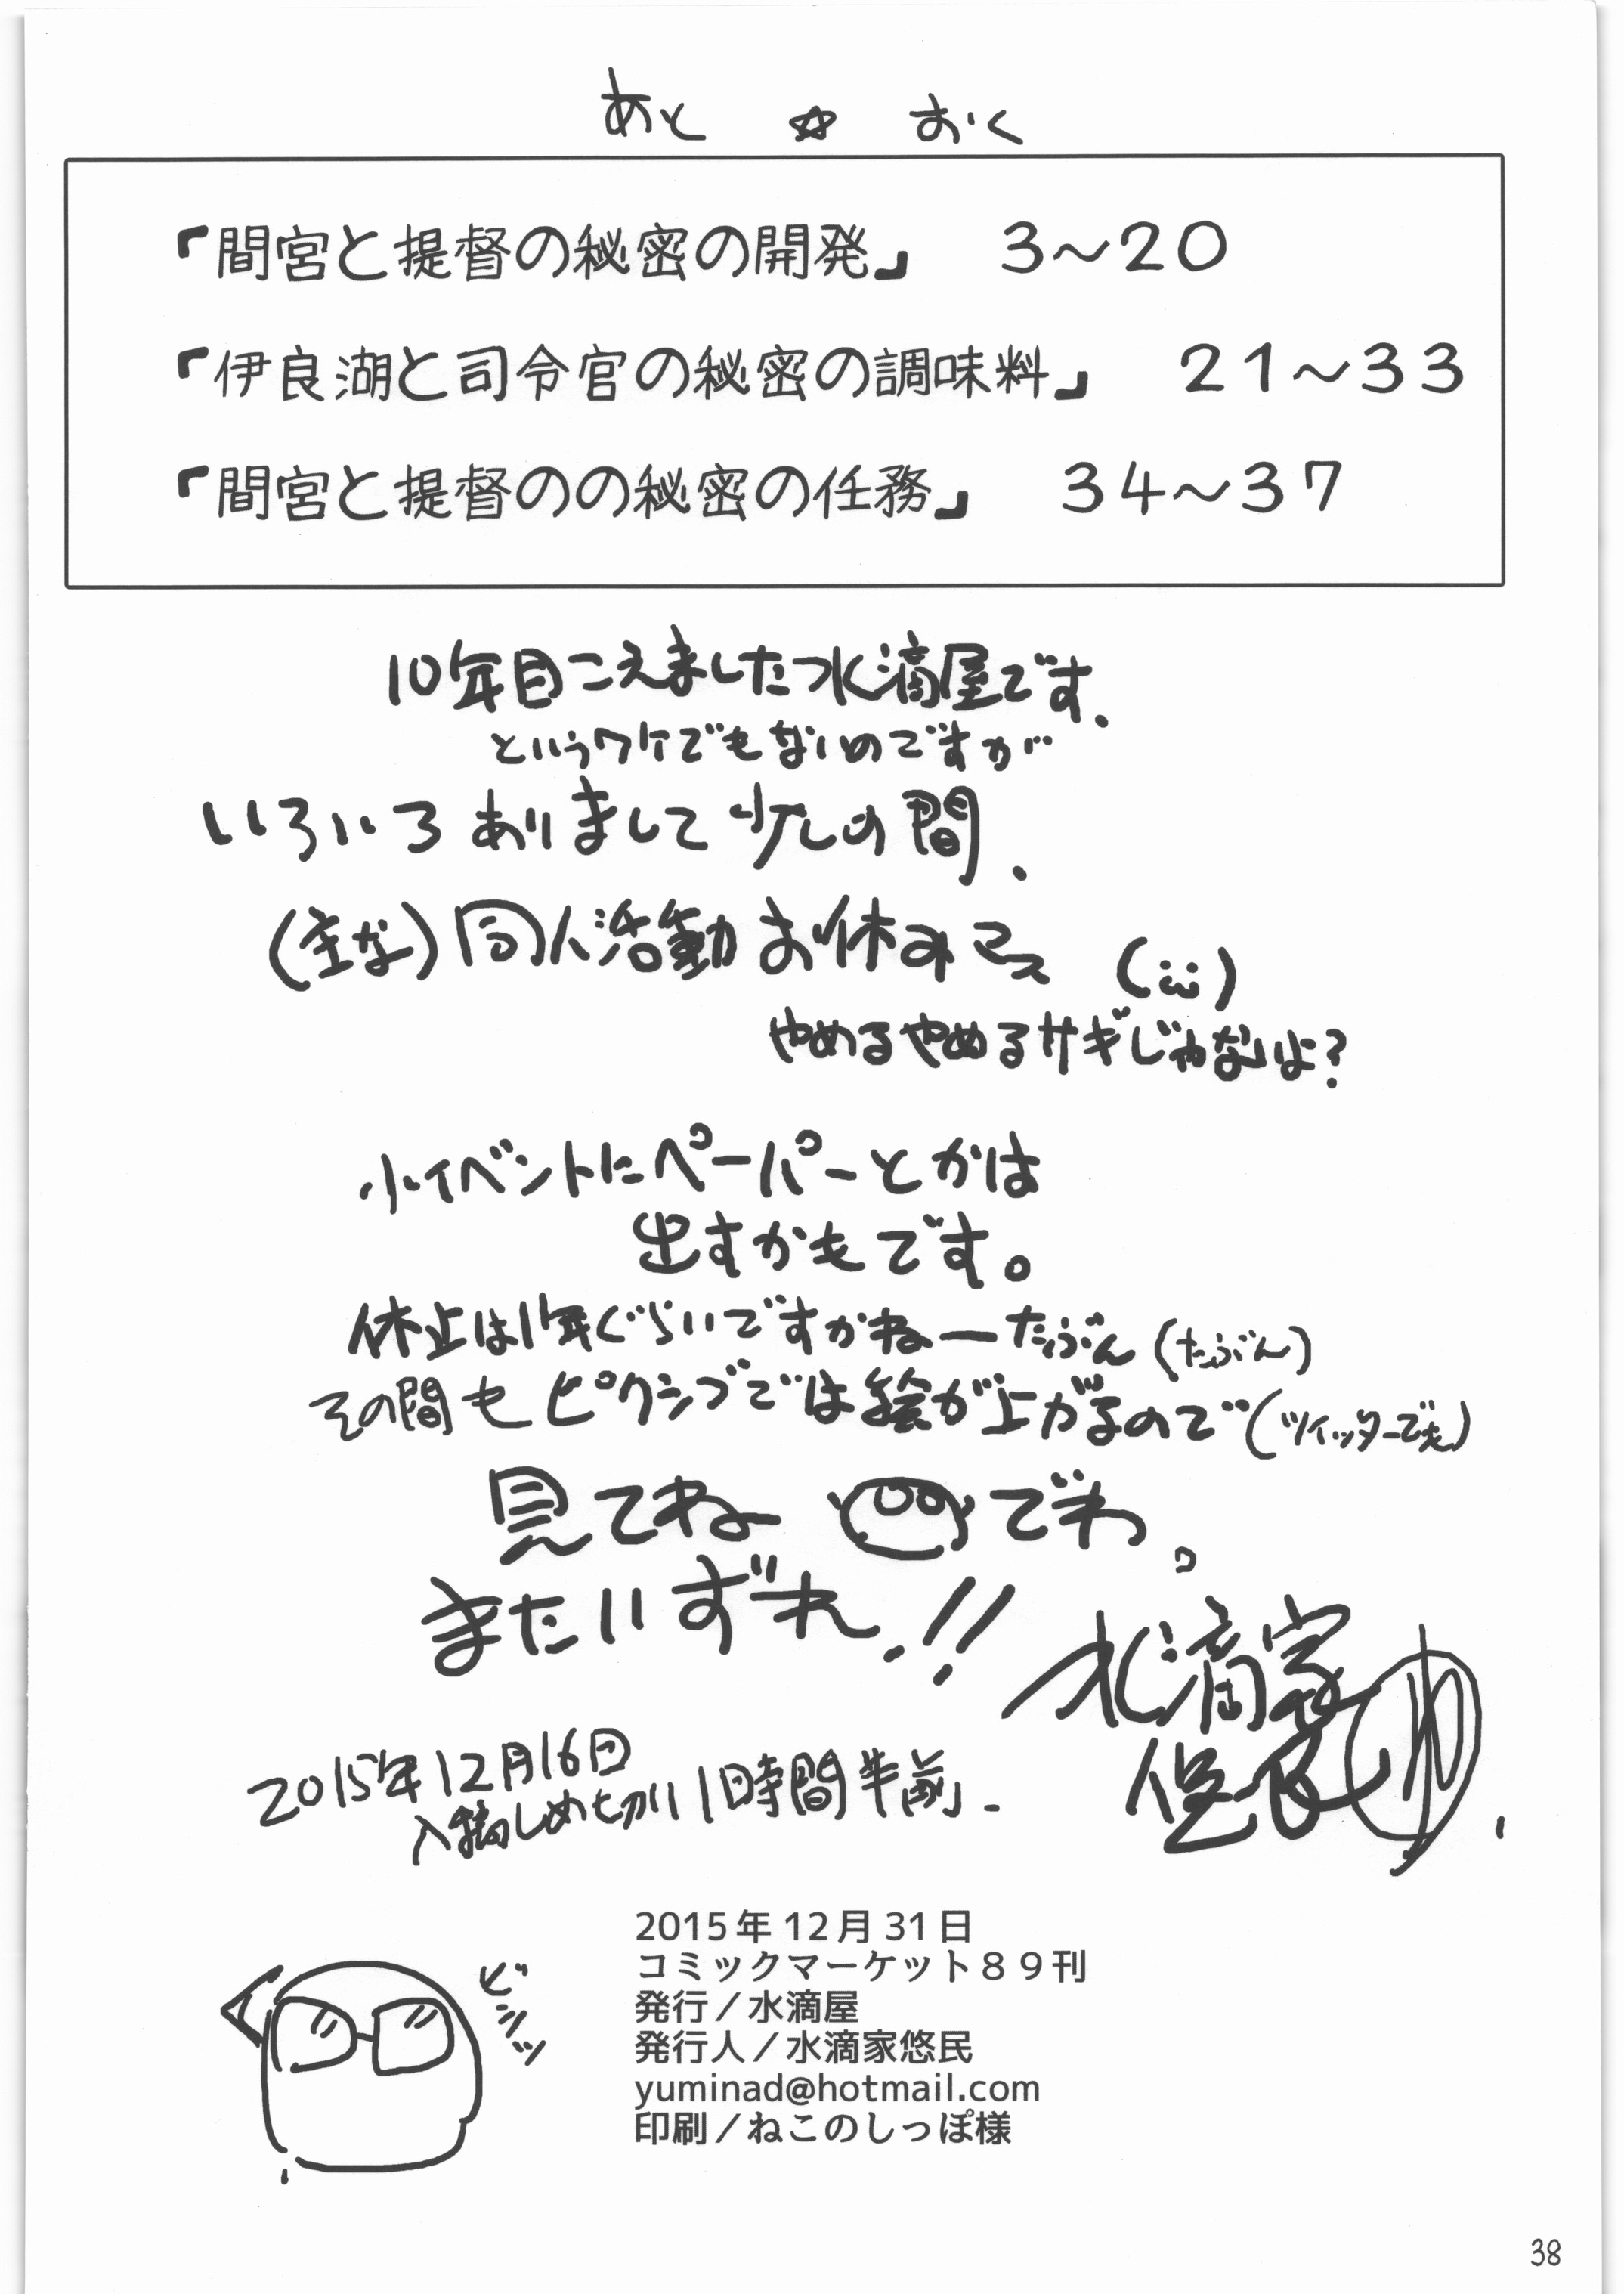 あと☆おく
『間宮と提督の秘密の開発』　3～20
『伊良湖と司令官の秘密の調味料』　21～33
『間宮と提督のの秘密の任務』　34～37
10年目こえました水滴屋です、
というワケでもないのですが…
いろいろありまして少しの間、
(主な)同人活動お休みマス (ﾆωﾆ)
やめるやめるサギじゃないよ?
小イベントにペーパーとかは
出すかもです。
休止は1年ぐらいですかねーたぶん(たぶん)
その間もピクシブでは絵が上がるので(ツイッターでも)
見てねー でわ。
またいずれ!!
水滴家
悠民
2015年12月16日
入稿しめ切り1時間半前、
ビシッ
2015年12月31日
コミックマーケット８９刊
発行／水滴屋
発行人／水滴家悠民
yuminad@hotmail.com
印刷／ねこのしっぽ様
38